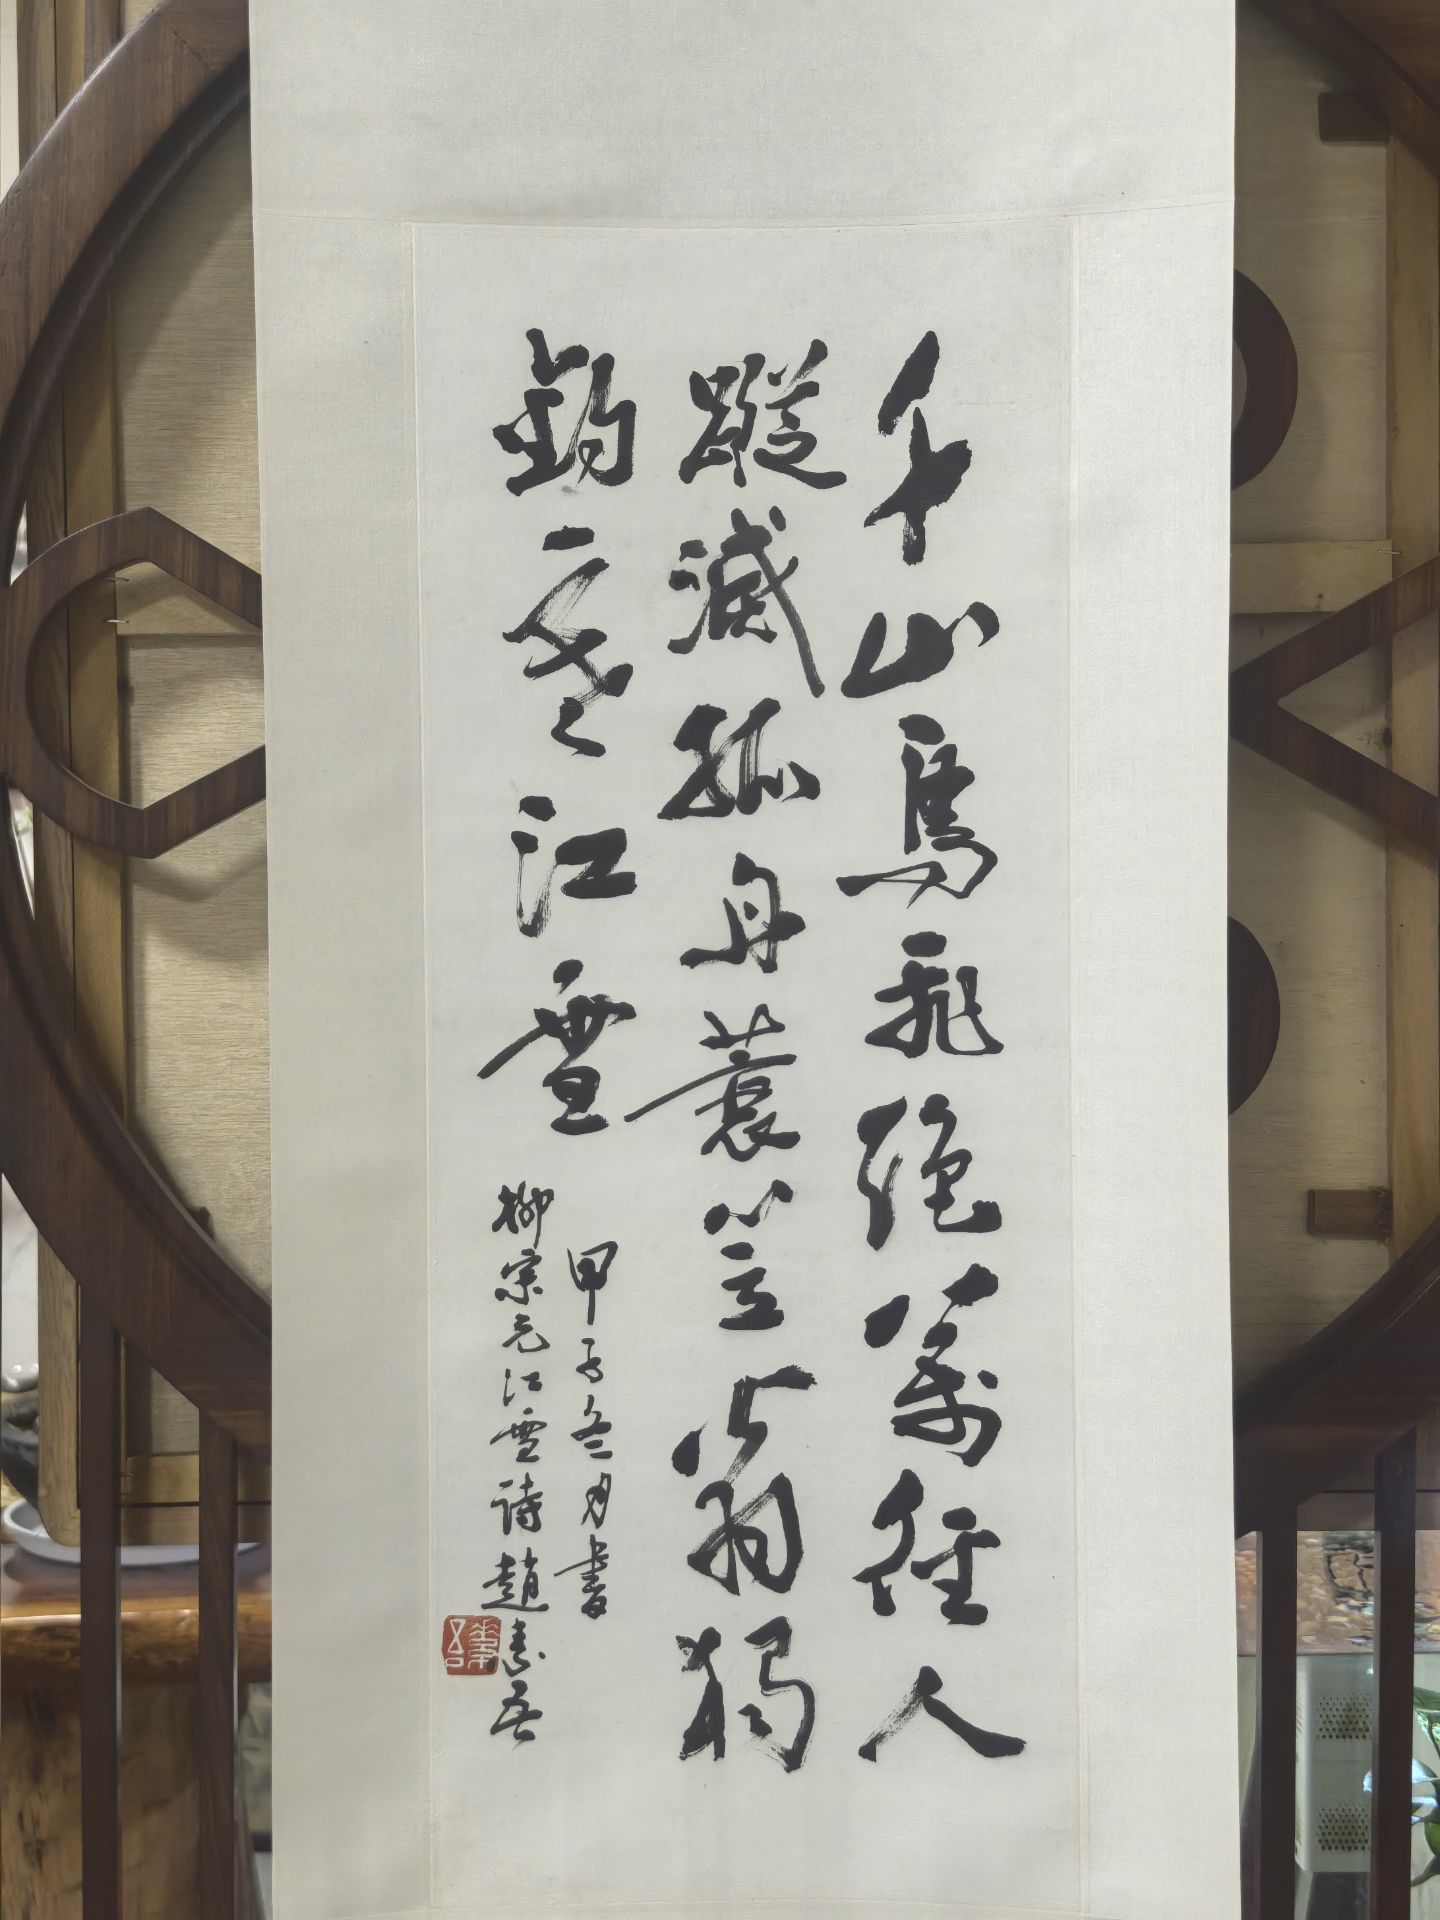 千山鳥飛絕萬徑人
蹤滅孤舟蓑笠翁獨
釣寒江雪
甲子冬月書
柳宗元江雪詩趙素吾